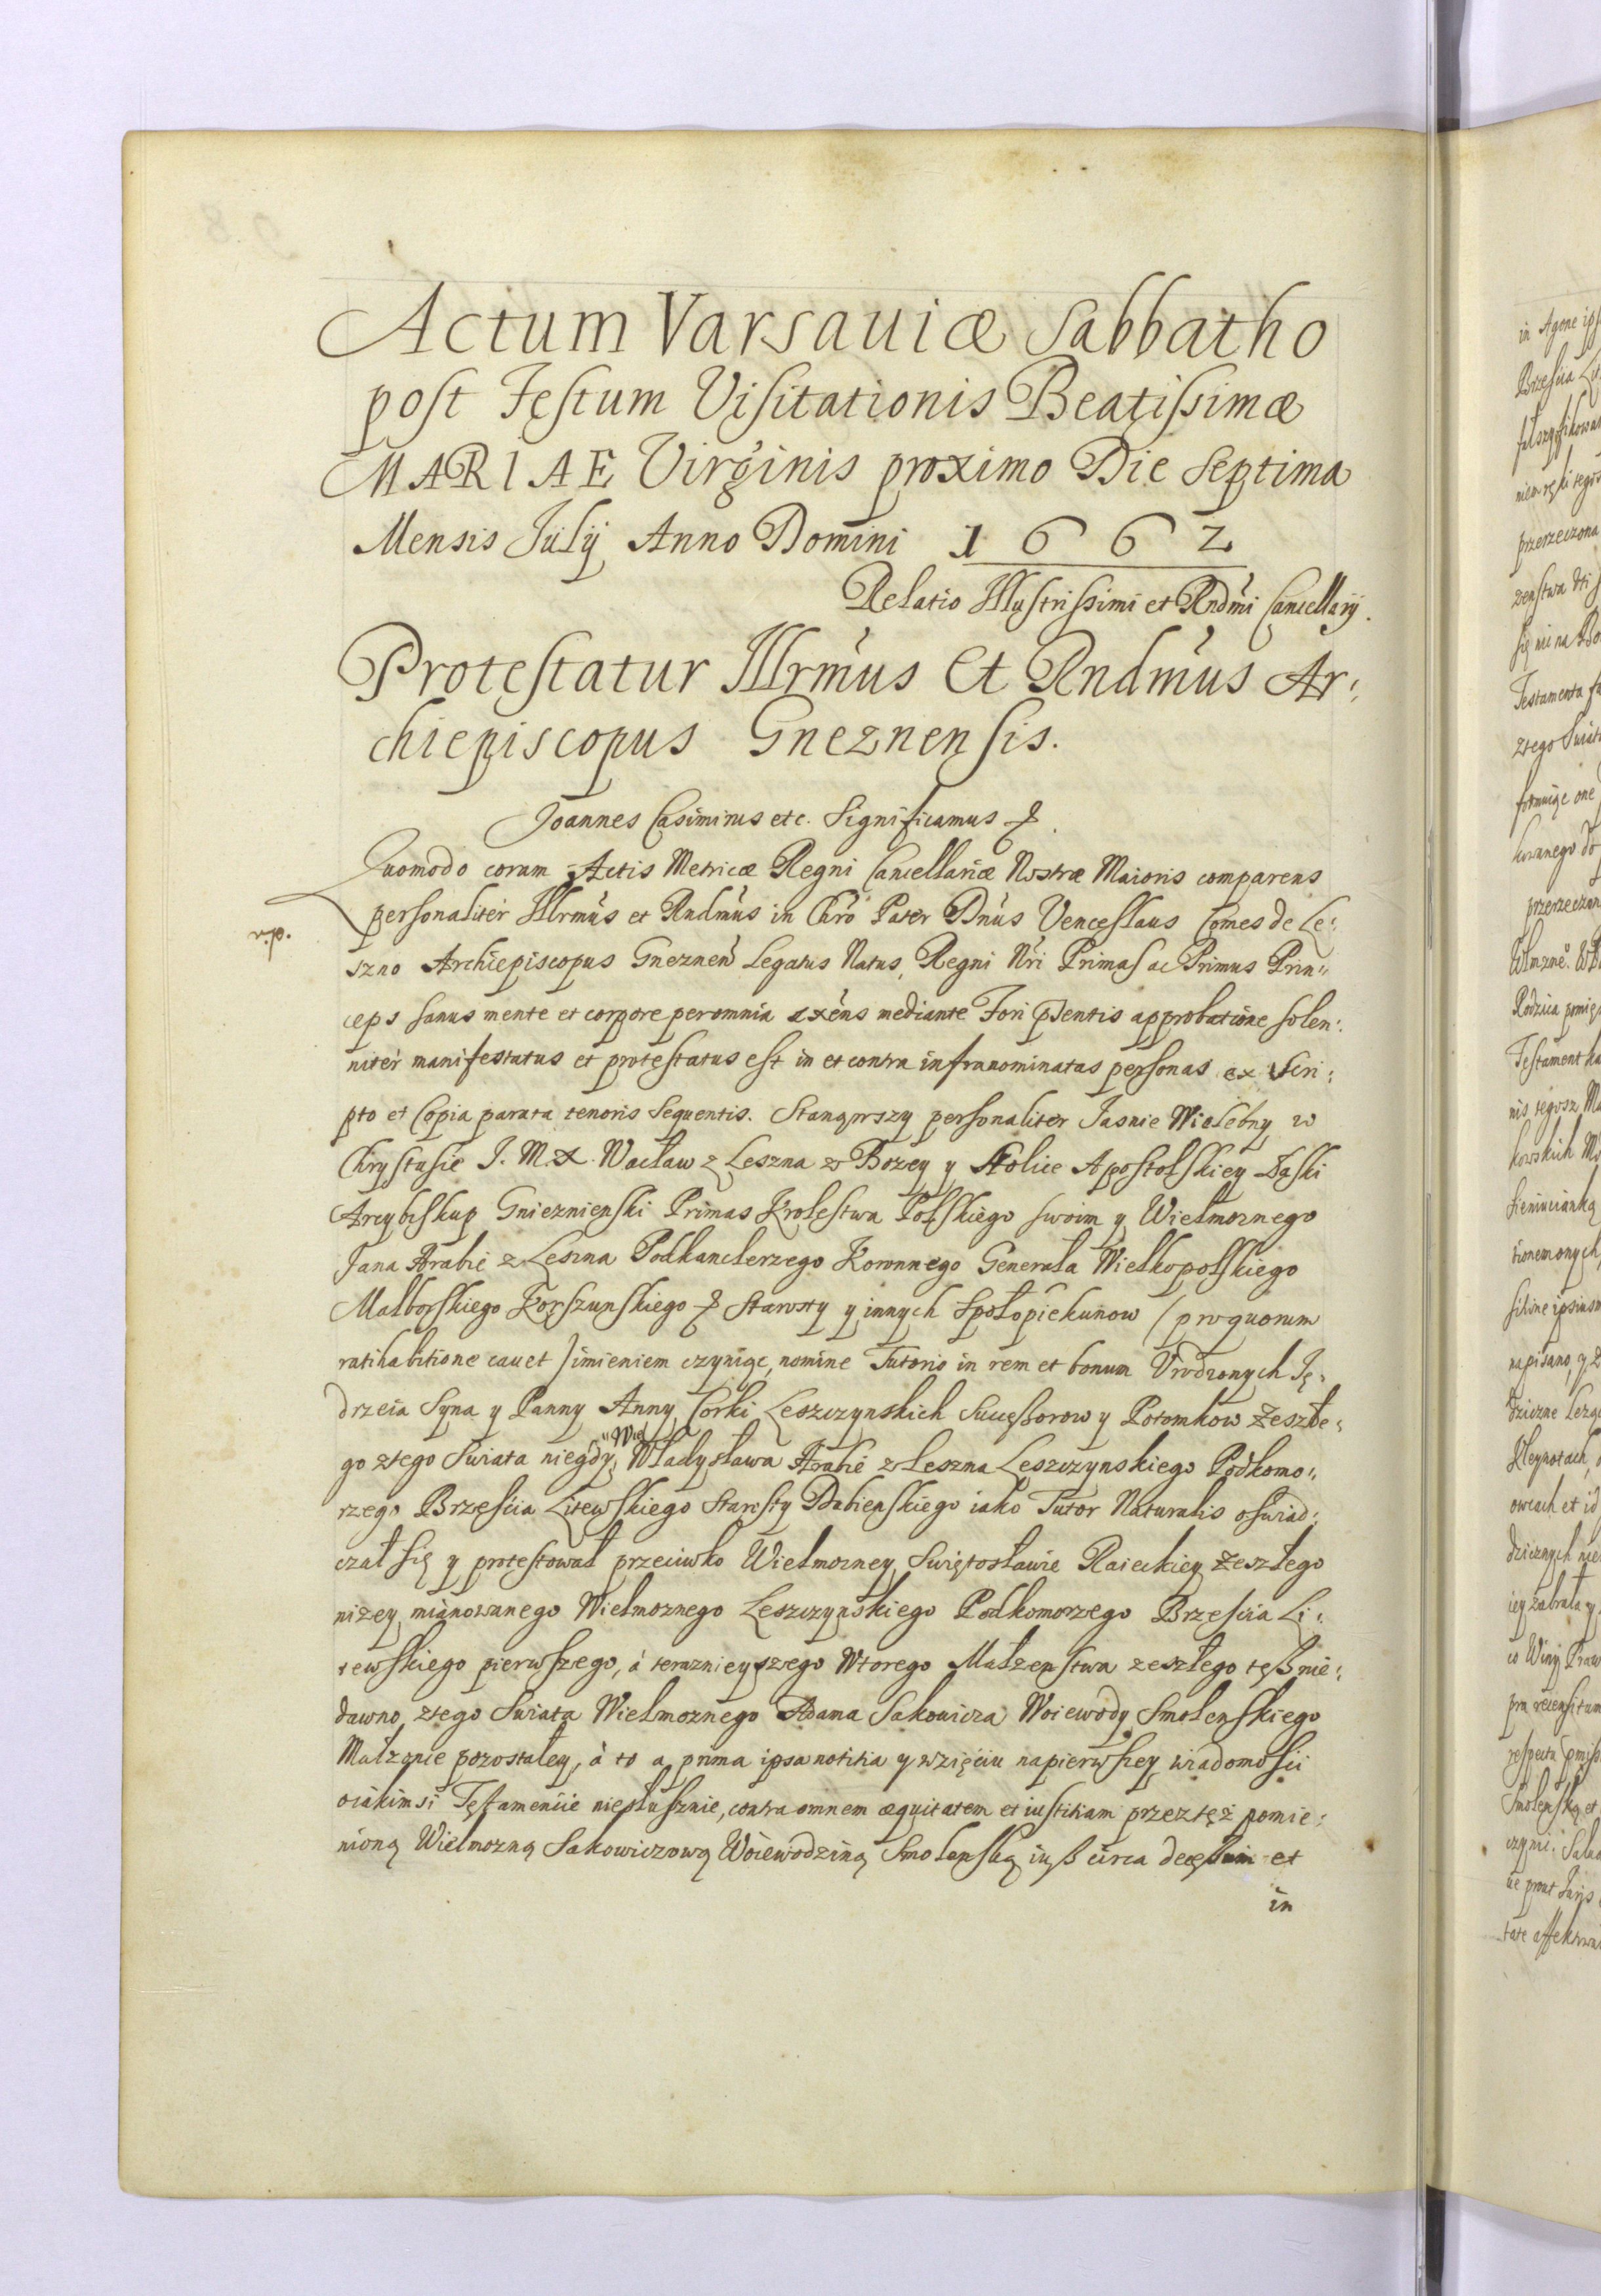 Actum Varsauiæ Sabbatho
post Festum Visitationis Beatissimæ
MARIAE Virginis proximo Die Septima
Mensis Julij Anno Domini 1662
Relatio Illustrissimi et Rndmi Cancellarij.
Protestatur Illrmus Et Rndmus Ar:
chiepiscopus Gneznensis.
Joannes Casimirus etc. Significamus
Quomodo coram Actis Metricæ Regni Cancellariæ Nostræ Maioris comparens
personaliter Illrmus et Rndmus in Chro Pater Dnus Venceslaus Comes de Le:
szno Archiepiscopus Gneznen Legatus Natus, Regni Nri Primas ac Primus Prin:
ceps sanus mente et corpore per omnia exens mediante Fori pntis approbatione solen:
niter manifestatus et protestatus est in et contra infranominatas personas ex Scri:
pto et Copia parata tenoris Sequentis. Stanąwszy personaliter Jasnie Wielebny w
Chrystusie J. M. X. Wacław z Leszna z Bozey y Stolice Apostolskiey Łąski
Arcybiskup Gnieznienski Primas Krolestwa Polskiego swoim y Wielmoznego
Jana Hrabie z Leszna Podkanclerzego Koronnego Generała Wielkopolskiego
Malborskiego Korszunskiego Starosty y innych Społopiekunow (pro quorum
ratihabitione cauet) imieniem czyniąc, nomine Tutorio in rem et bonum Vrodzonych Ję:
drzeia Syna y Panny Anny Corki Leszczynskich Successorow y Potomkow Zeszłe:
go ztego Swiata niegdy Wlo Władysława Hrabie z Leszna Leszczynskiego Podkomo:
rzego Brzęścia Litewskiego Starosty Dabienskiego iako Tutor Naturalis oświad:
czał się y protestował przeciwko Wielmozney Swiętosławie Raieckiey Zeszłego
nizey mianowanego Wielmoznego Leszczynskiego Podkomorzego Brzescia Li:
tewskiego pierwszego, á teraznieyszego Wtorego Małzenstwa zeszłego tęß nie:
dawno ztego Swiata Wielmoznego Adama Sakowicza Woiewody Smolenskiego
Małzonie pozostałey, á to a prima ipsa notitia y wzięciu napierwszey wiadomosci
oiakimsi Testamencie niesłusznie, contra omnem æquitatem et iustitiam przez tęż pomie:
nioną Wielmozną Sakowiczową Woiewodziną Smolenską iuß circa decessum et
in